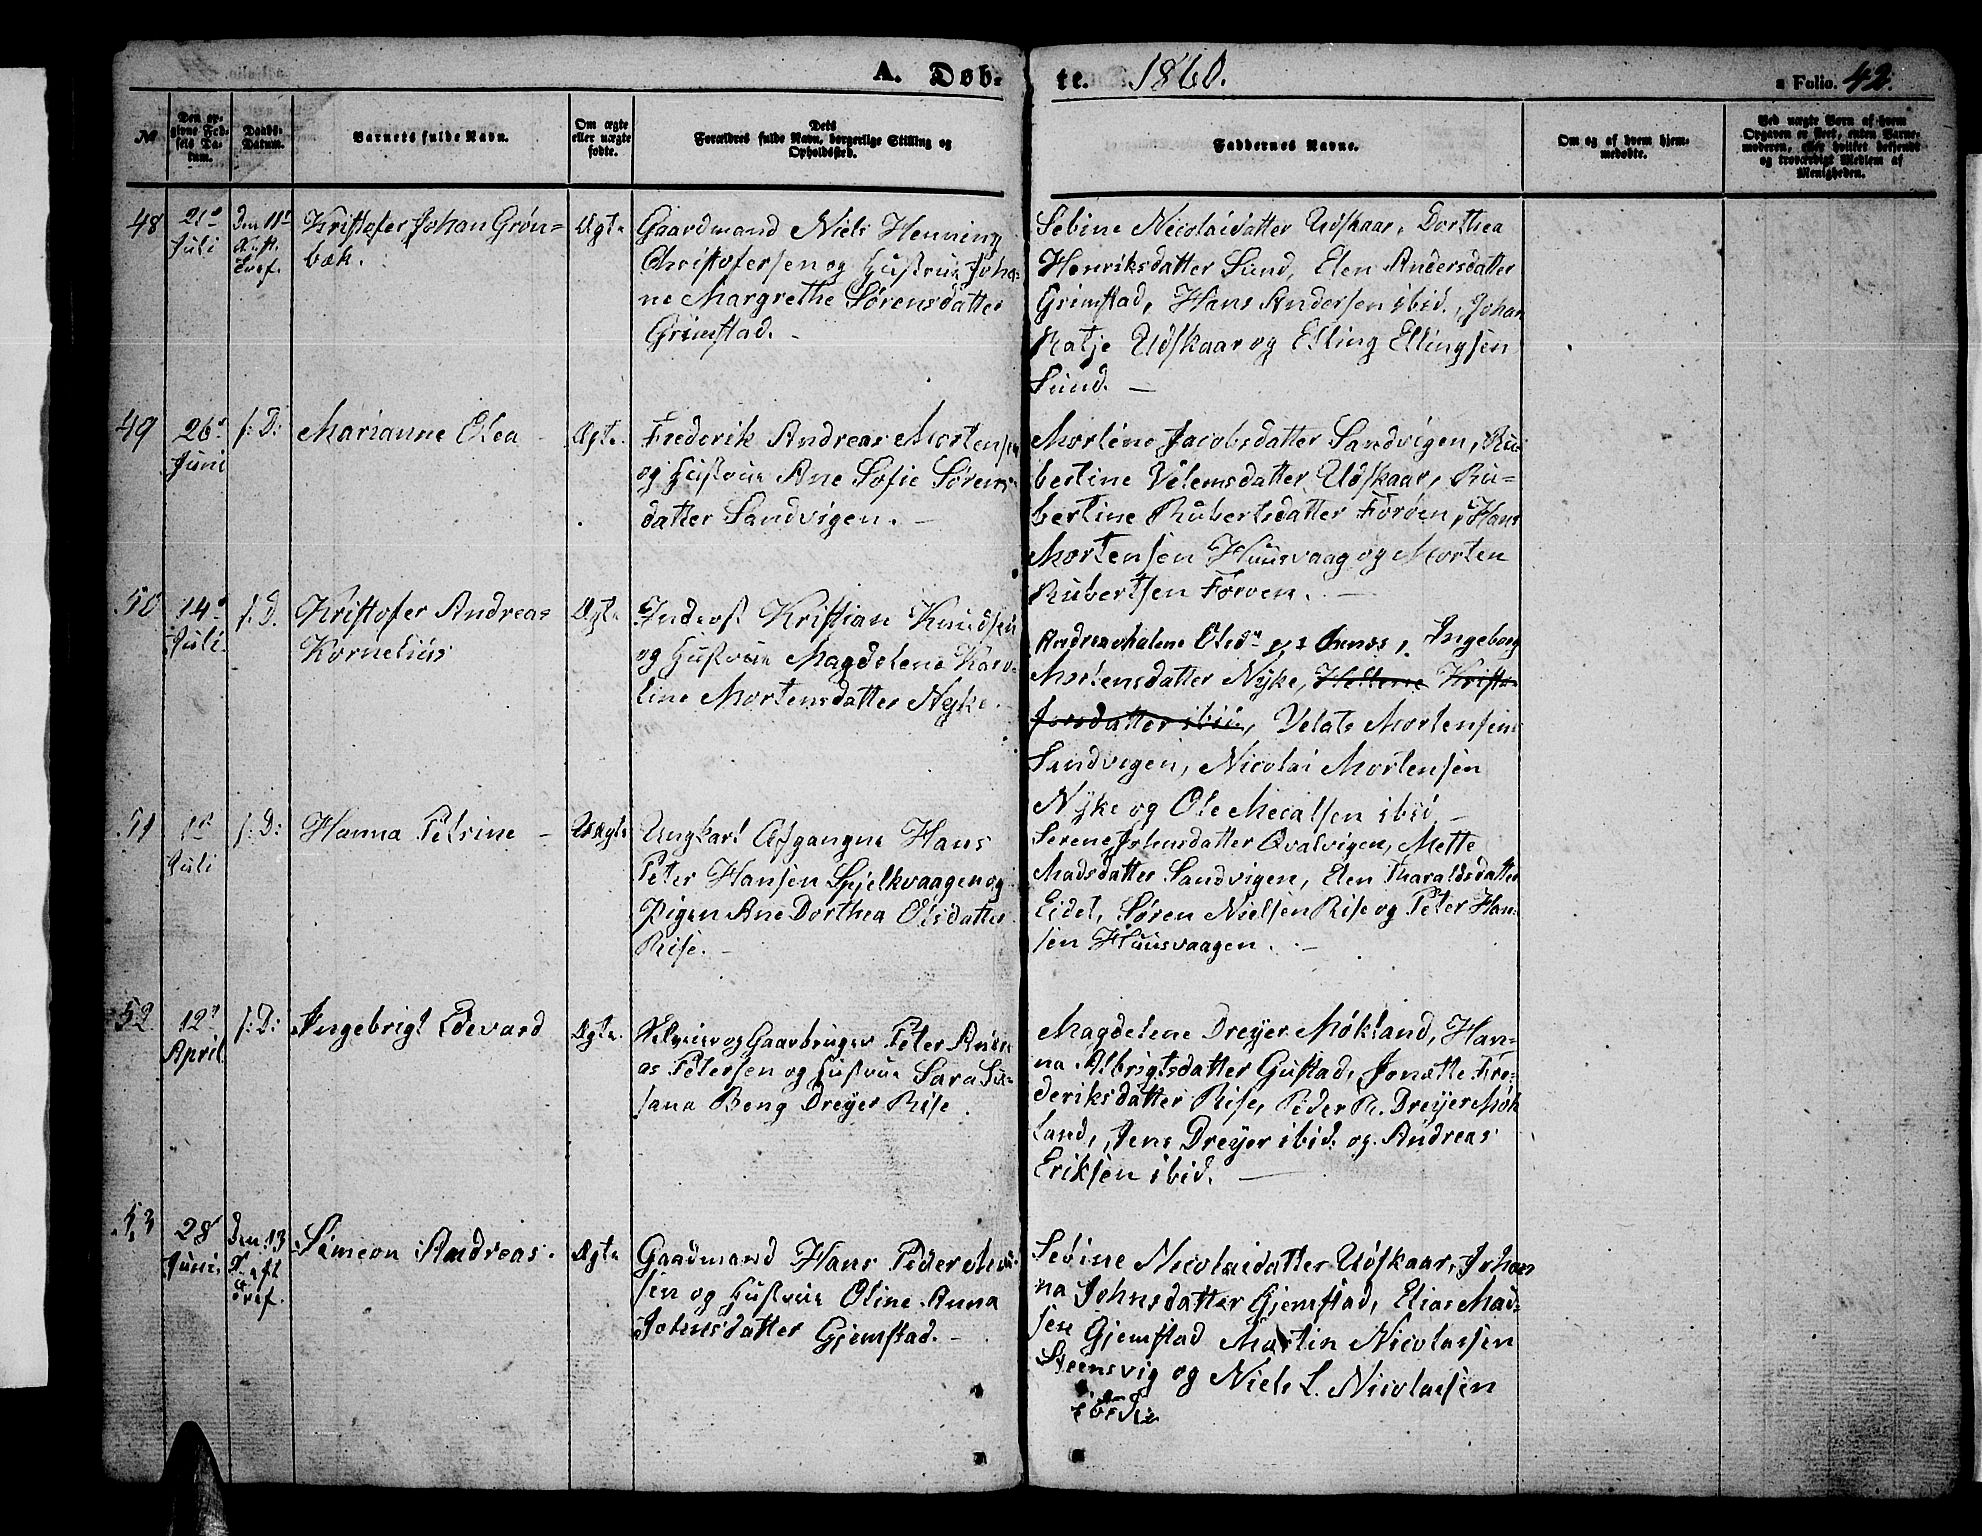 A. Døb-
te. 1860.
Folio. 42.
No
Den opgivne Fødsels Datum.
Daabs-Datum.
Barnets fulde Navn.
Om ægte eller uægte fødte.
Dets Forældres fulde Navn, borgerlige Stilling og Opholdssted.
Faddernes Navne.
Om og af hvem hjemmedøbte.
Ved uægte Børn af hvem Opgaven er skeet, enten Barnemoderen, eller hvilket bekjendt og troværdigt Medlem af Menigheden.
48
21de Juli
Den 11te
Kristofer Johan Grøn=
bæk.
Ægte
Gaardmand Niels Henning
Christofersen og Hustrue Joha-
ne Margrethe Sørensdatter
Grimstad. -
Sebine Nicolaidatter Udskaar, Dorthea
Henriksdatter Sund, Elen Andersdatter
Grimstad, Hans Andersen ibid., Johan
Ratje Udskaar og Elling Ellingsen
Sund. —
49
26de
Juni
s: D:
Marianne Elea -
Ægte.
Frederik Andreas Mortensen
og Hustrue Ane Sofie Sørens-
datter Sandvigen. -
Mortine Jacobsdatter Sandvigen, Ru-
bertine Velemsdatter Udskaar, Ru-
bertine Rubertsdatter Forøen, Hans
Mortensen Huusvaag og Morten
Rubertsen Forøen. —
50
14de
Juli
s: D.
Kristofer Andreas
Kornelius
Ægte
Inderst Kristian Knudsen
og Hustrue Magdelene Karo-
line Mortensdatter Nyke.
Ingeborg
Mortensdatter Nyke, Hellene Kristo-
forsdatter ibid, Velats Mortensen
Sandvigen, Nicolai Mortensen
Nyke og Ole Mecalsen ibid. -
51
1ste
Juli
s: D:
Hanna Petrine -
Uægte
Ungkarl Afgangne Hans
Peter Hansen Spjelkvaagen og
Pigen Ane Dorthea Olsdatter
Rise. -
Serene Johnsdatter Qvalvigen, Mette
Madsdatter Sandvigen, Elen Tharaldsdatter
Eidet, Søren Nielsen Rise og Peter Han-
sen Huusvaagen. -
52
12te
April
s: D:
Ingebrigt Edevard
Ægte.
Selveier og Gaardbruger Peter Andre-
as Petersen og Hustrue Sara Su-
sana Beng Dreyer Rise.
Magdelene Dreyer Møkland, Han-
na Albrigtsdatter Gustad, Jonette Fre-
deriksdatter Rise, Peder R. Dreyer Møk-
land, Jens Dreyer ibid. og Andreas
Eriksen ibid. —
53
28
Juni
Den 13
Simeon Andreas.
Ægte
Gaadmand Hans Peder
sen og Hustrue Oline Anna
Johnsdatter Gjemstad. -
Sebine Nicolaidatter Udskaar, Johan
na Johnsdatter Gjemstad, Elias Mad-
sen Gjemstad Martin Nicolaisen
Steensvig og Niels L. Nicolaisen